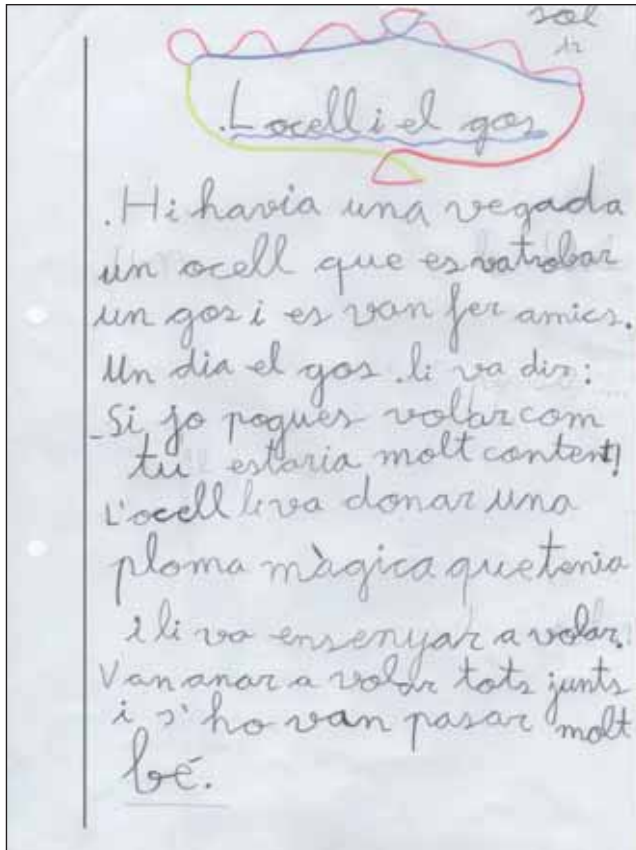 sol
.L ocell i el gos
.Hi havia una vegada
un ocell que es va trobar
un gos i es van fer amics.
Un dia el gos .li va dir:
-Si jo pogues volar com
tu estaria molt content!
L'ocell li va donar una
ploma màgica que tenia
i li va ensenyar a volar.
Van anar a volar tots junts
i s'ho van pasar molt
bé.